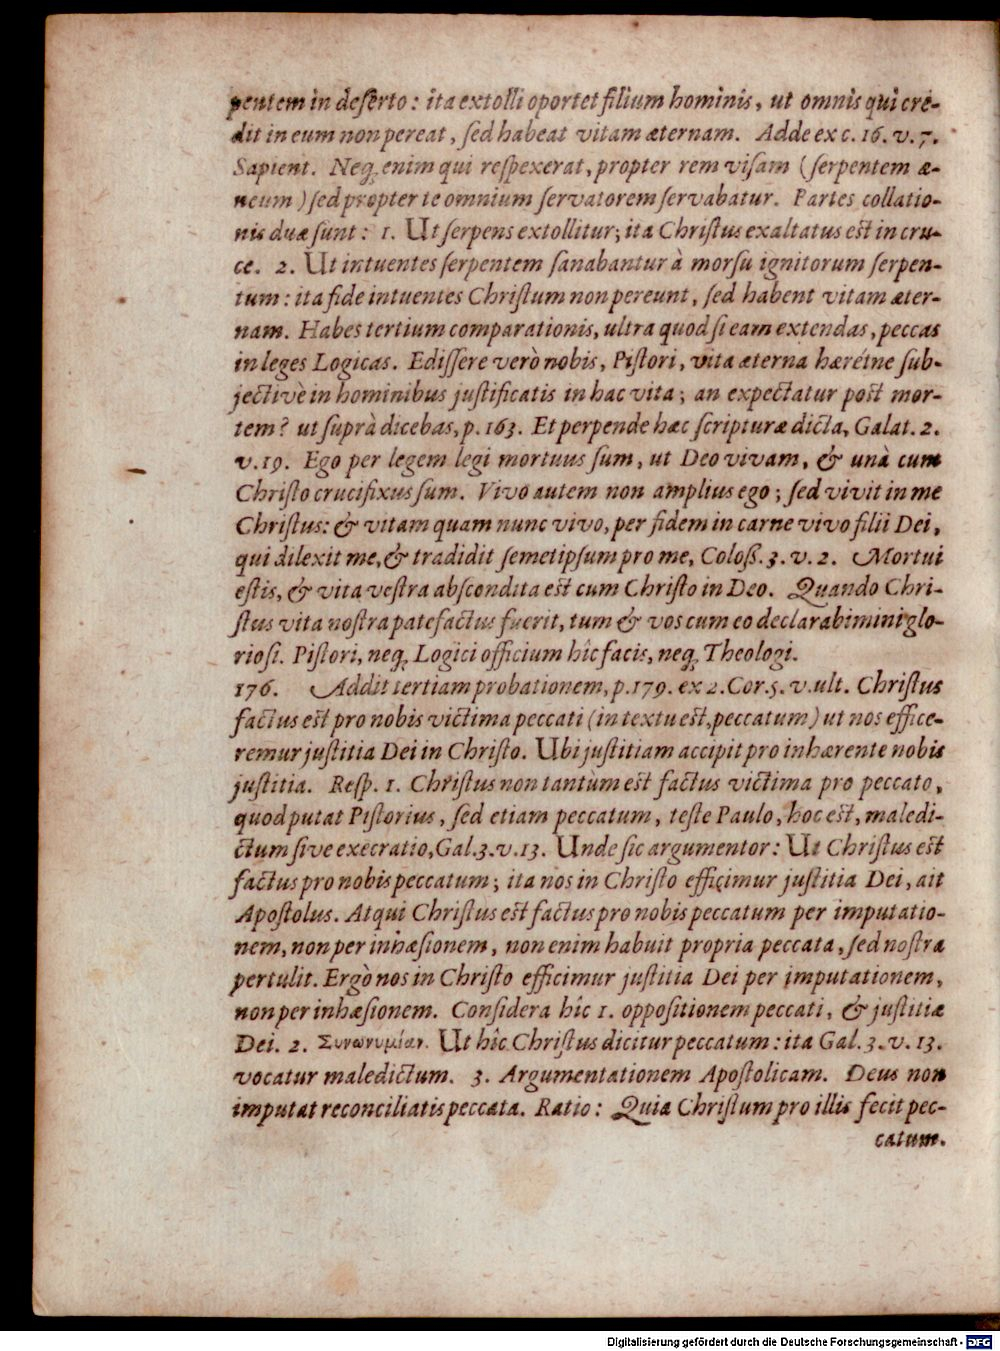 pentem in deserto: ita extolli oportet filium hominis, ut omnis qui cre-
dit in eum non pereat, sed habeat vitam æternam. Adde ex c. 16. v. 7.
Sapient. Neq; enim qui respexerat, propter rem visam (serpentem æ-
neum) sed propter te omnium servatorem servabatur. Partes collatio-
nis duæ sunt: 1. Ut serpens extollitur; ita Christus exaltatus est in cru-
ce. 2. Ut intuentes serpentem sanabantur à morsu ignitorum serpen-
tum: ita fide intuentes Christum non pereunt, sed habent vitam æter-
nam. Habes tertium comparationis, ultra quod si eam extendas, peccas
in leges Logicas. Edissere verò nobis, Pistori, vita æterna hæreine sub-
jectivè in hominibus justificatis in hac vita; an expectatur post mor-
tem? ut suprà dicebas, p. 163. Et perpende hæc scripturæ dicta, Galat. 2.
v. 19. Ego per legem legi mortuus sum, ut Deo vivam, & unà cum
Christo crucifixus sum. Vivo autem non amplius ego; sed vivit in me
Christus: & vitam quam nunc vivo, per fidem in carne vivo filii Dei,
qui dilexit me, & tradidit semetipsum pro me, Coloß. 3. v. 2. Mortui
estis, & vita vestra abscondita est cum Christo in Deo. Quando Chri-
stus vita nostra patefactus fuerit, tum & vos cum eo declarabimini glo-
riosi. Pistori, neq; Logici officium hîc facis, neq; Theologi.
176. Addit tertiam probationem, p. 179. ex 2. Cor. 5. v. ult. Christus
factus est pro nobis victima peccati (in textu est, peccatum) ut nos effice-
remur justitia Dei in Christo. Ubi justitiam accipit pro inhærente nobis
justitia. Resp. 1. Christus non tantùm est factus victima pro peccato,
quod putat Pistorius, sed etiam peccatum, teste Paulo, hoc est, maledi-
ctum sive execratio, Gal. 3. v. 13. Unde sic argumentor: Ut Christus est
factus pro nobis peccatum; ita nos in Christo efficimur justitia Dei, ait
Apostolus. Atqui Christus est factus pro nobis peccatum per imputatio-
nem, non per inhæsionem, non enim habuit propria peccata, sed nostra
pertulit. Ergò nos in Christo efficimur justitia Dei per imputationem,
non per inhæsionem. Considera hîc 1. oppositionem peccati, & justitiæ
Dei. 2. Συνωνυμίαν. Ut hîc Christus dicitur peccatum: ita Gal. 3. v. 13.
vocatur maledictum. 3. Argumentationem Apostolicam. Deus non
imputat reconciliatis peccata. Ratio: Quia Christum pro illis fecit pec-
catum.
Digitalisierung gefördert durch die Deutsche Forschungsgemeinschaft - DFG